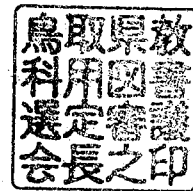 鳥取県教
科用図書
選定審議
会長之印